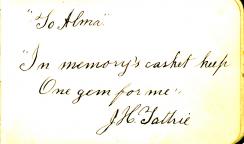 "To Alma"
"In memory's casket keep
One gem for me".
J. H. Guthrie